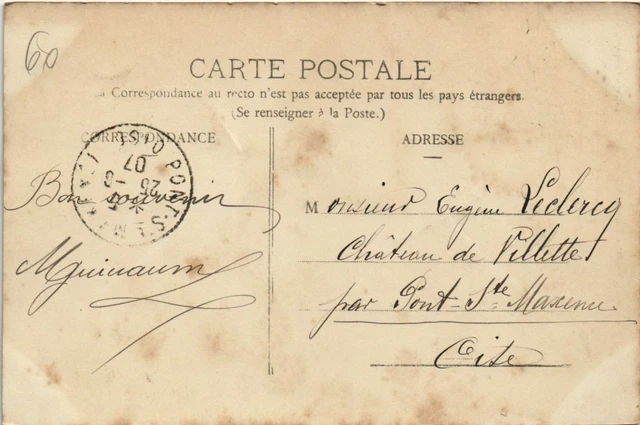 60
CARTE POSTALE
La Correspondance au recto n'est pas acceptée par tous les pays étrangers
(Se renseigner à la Poste.)
CORRESPONDANCE
ADRESSE
PONT-STE-M
07
26
Bon souvenir
Monsieur Eugène Leclercq
Château de Villette
par Pont-Ste Maxence
Oise